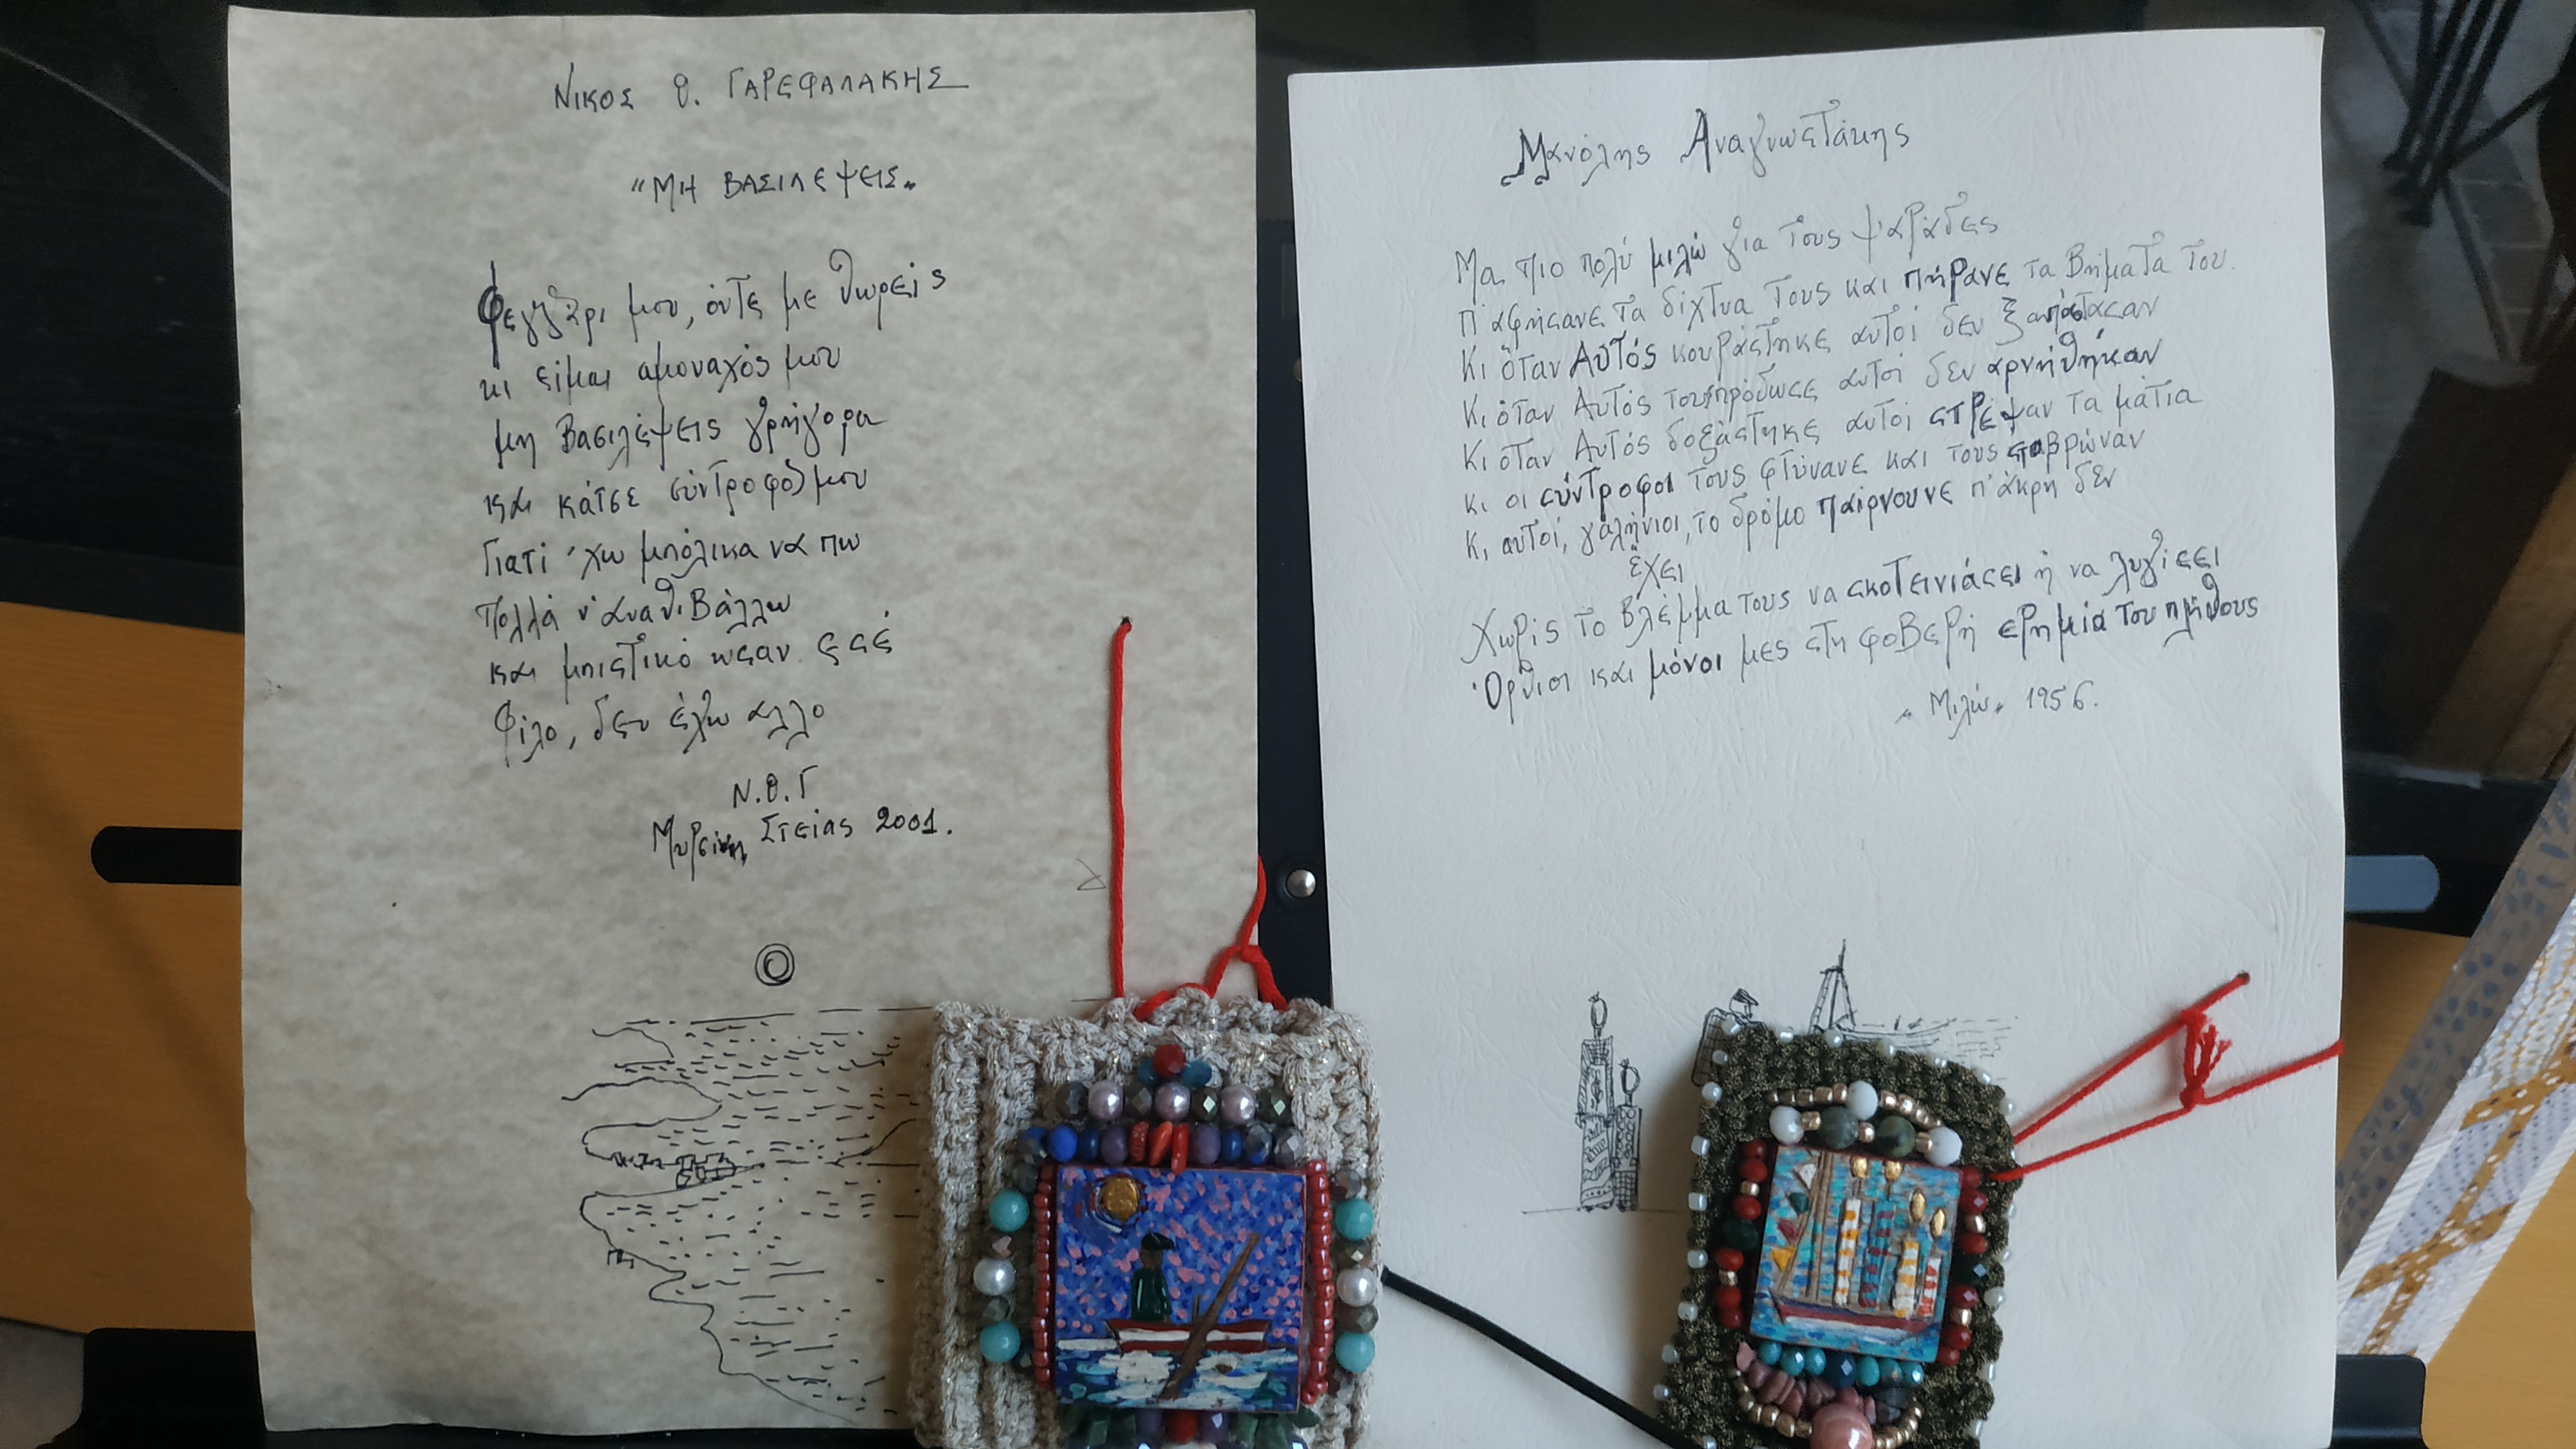 ΝΙΚΟΣ Θ. ΓΑΡΕΦΑΛΑΚΗΣ
"ΜΗ ΒΑΣΙΛΕΨΕΙΣ"
Φεγγάρι μου, όντε με θωρείς
κι είμαι αμοναχός μου
μη βασιλέψεις γρήγορα
και κάτσε σύντροφός μου
Γιατί 'χω μπόλικα να πω
Πολλά ν' αναθιβάλλω
και μπιστικό ωσαν εσέ
Φίλο, δεν έχω αλλο
Ν.Θ.Γ
Μυρσίνη Σιτείας 2001.
Μανόλης Αναγνωστάκης
Μα πιο πολύ μιλώ για τους ψαράδες
Π' αφήσανε τα δίχτυα τους και πήρανε τα βήματα Του.
Κι όταν Αυτός κουράστηκε αυτοί δεν ξαποστάσαν
Κι όταν Αυτός τους πρόδωσε αυτοί δεν αρνήθηκαν
Κι όταν Αυτός δοξάστηκε αυτοί στρέψαν τα μάτια
κι οι σύντροφοι τους φτύνανε και τους σταβρώναν
Κι αυτοί, γαλήνιοι, το δρόμο παίρνουνε π' άκρη δεν
έχει
Χωρίς το βλέμμα τους να σκοτεινιάσει ή να λυγίσει
Όρθιοι και μόνοι μες στη φοβερή ερημία του πλήθους
"Μιλώ" 1956.